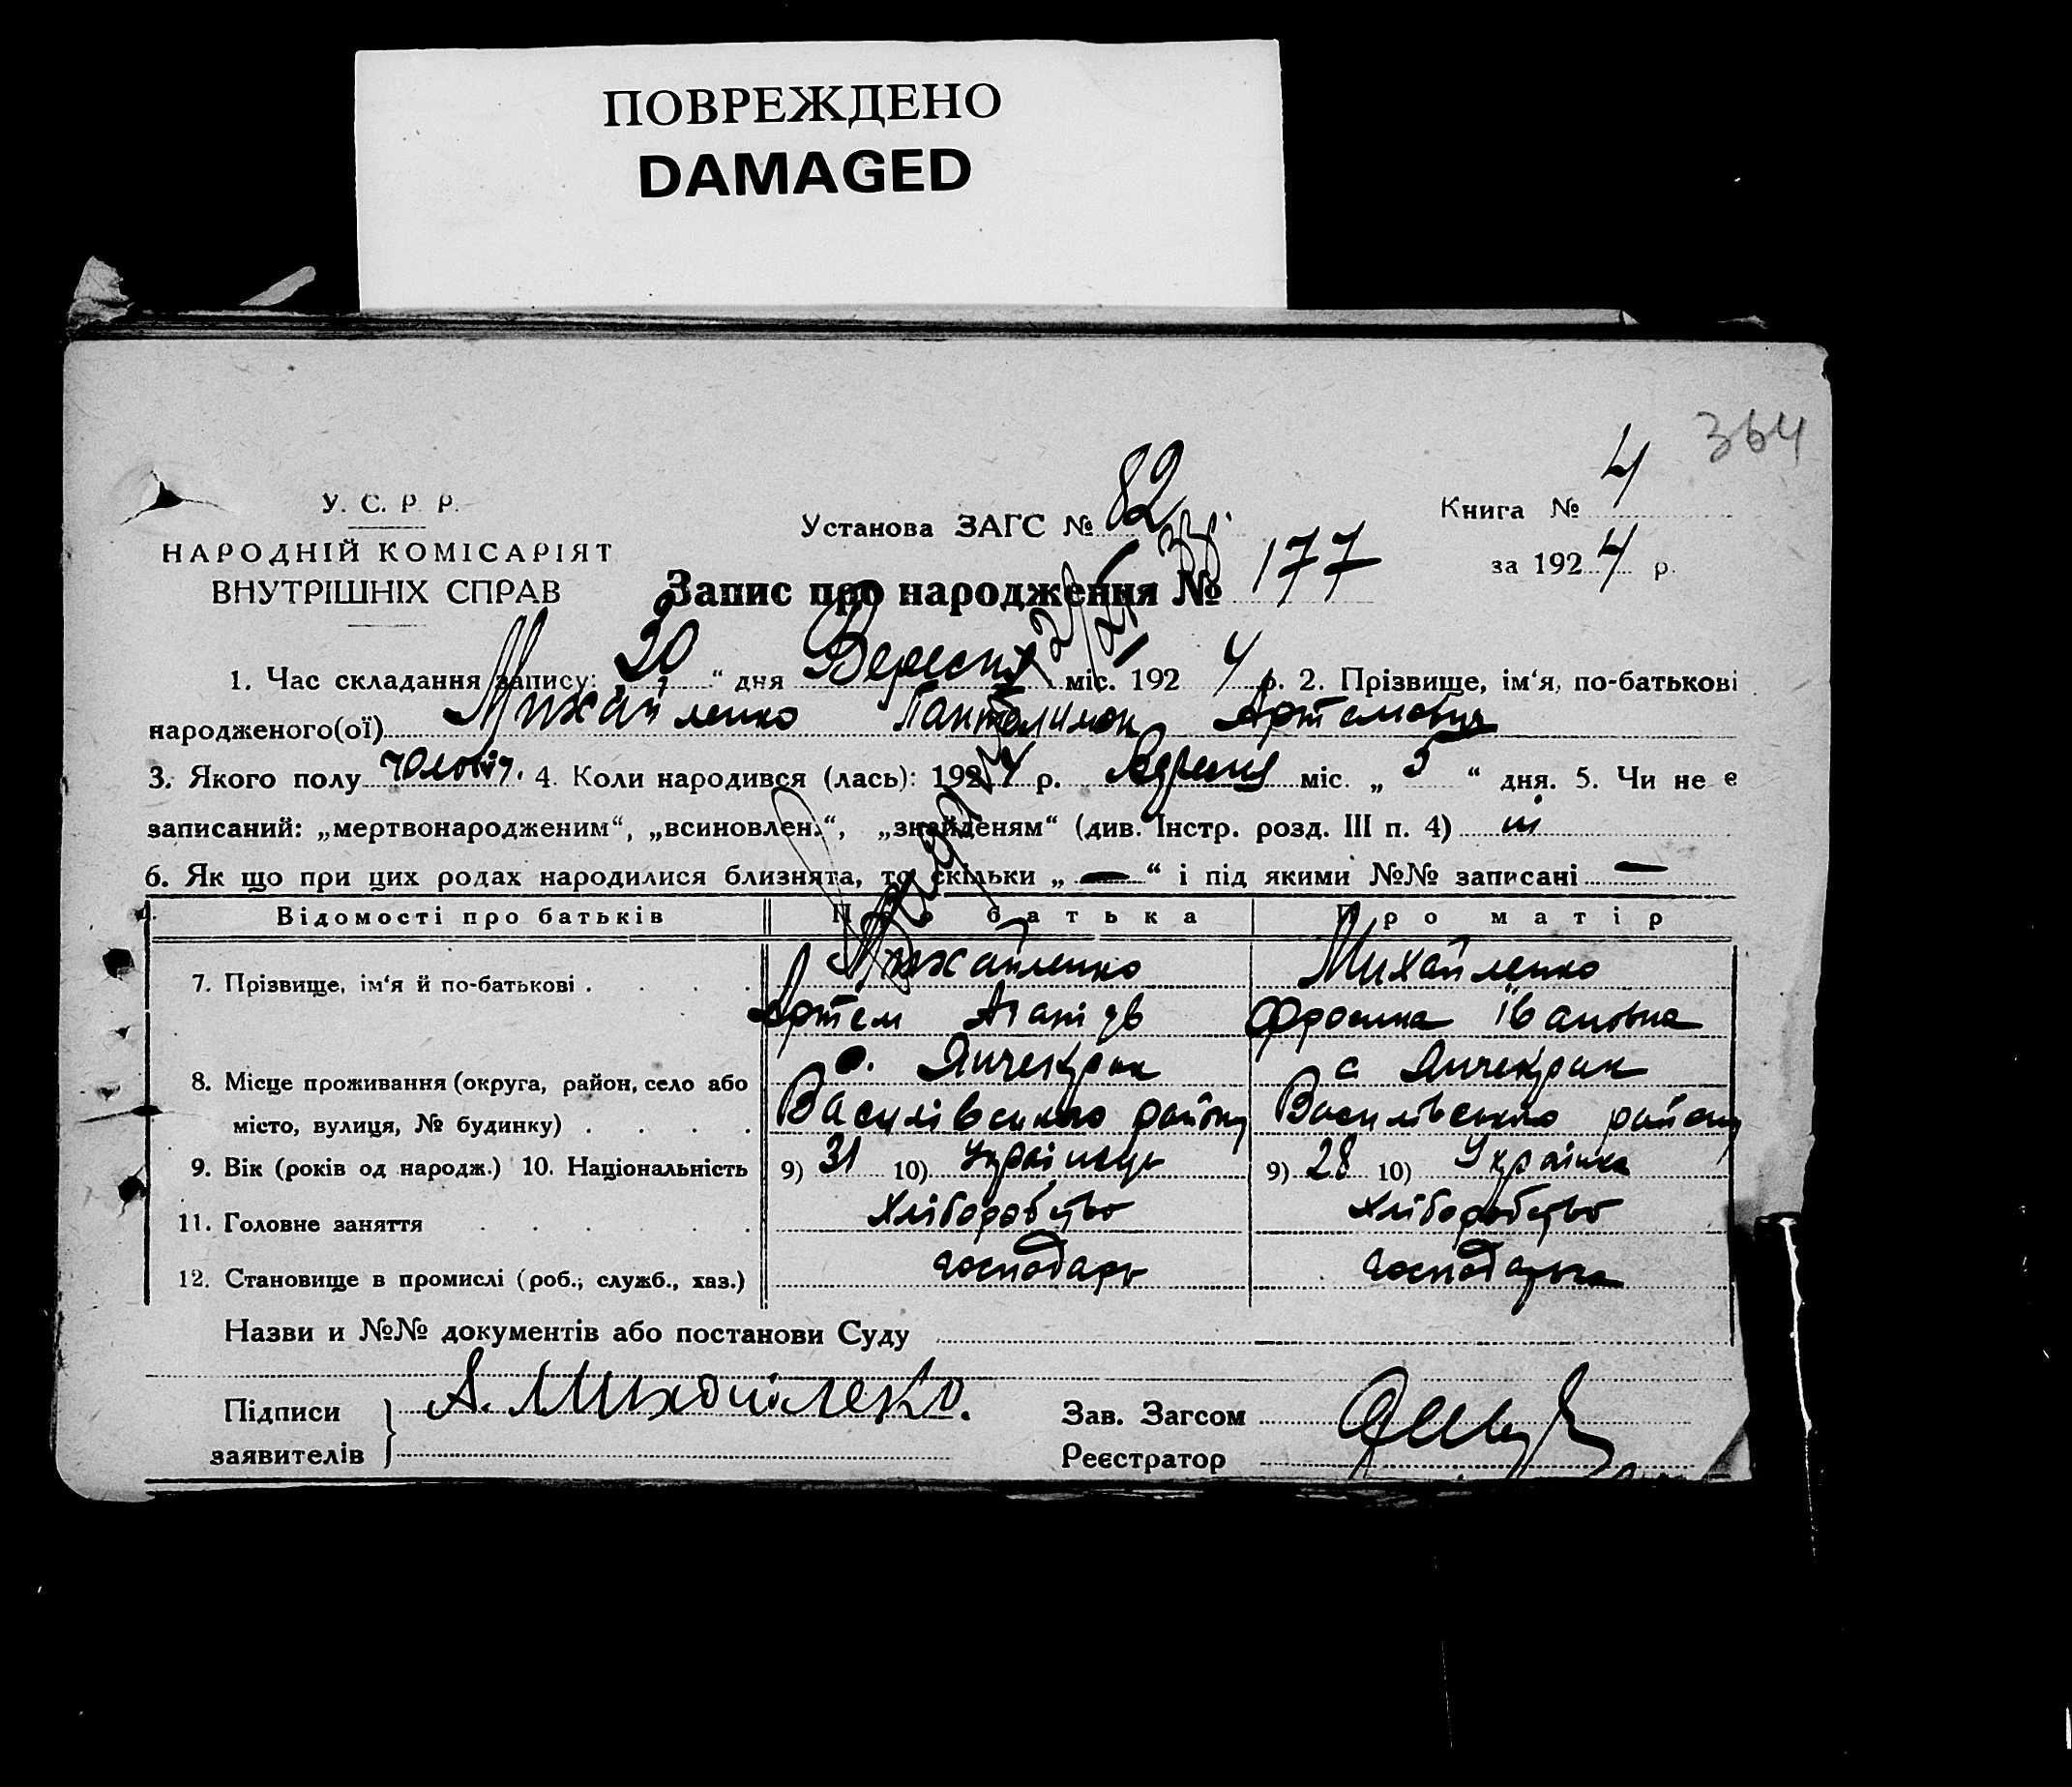 ПОВРЕЖДЕНО
DAMAGED
364
У. С. Р. Р.
НАРОДНІЙ КОМІСАРІЯТ
ВНУТРІШНІХ СПРАВ
Установа ЗАГС № 82
Книга № 4
за 1924 р.
Запис про народження № 177
1. Час складання запису: „20“ дня Вересня міс. 1924 р. 2. Прізвище, ім‘я, по-батькові
народженого(ої) Михайленко Пантелимон Артемович
3. Якого полу чоловіч. 4. Коли народився (лась): 1924 р. Вересня міс. „5“ дня. 5. Чи не є
записаний: „мертвонародженим“, „всиновлен.“, „знайденям“ (див. Інстр. розд. III п. 4) ні
6. Як що при цих родах народилися близнята, то скільки „—“ і під якими №№ записані —
Відомості про батьків Про батька Про матір
7. Прізвище, ім‘я й по-батькові . . . . Михайленко Михайленко
Артем Івановна
8. Місце проживання (округа, район, село або с. Янчекрак с Янчекрак
місто, вулиця, № будинку) . . . . Василівського району Василівського району
9. Вік (років од народж.) 10. Національність 9) 31 10) Українець 9) 28 10) Українка
11. Головне заняття . . . . . Хліборобство Хліборобство
12. Становище в промислі (роб., служб., хаз.) господарь господарька
Назви и №№ документів або постанови Суду
Підписи
заявителів
А. Михайлеко.
Зав. Загсом
Реєстратор